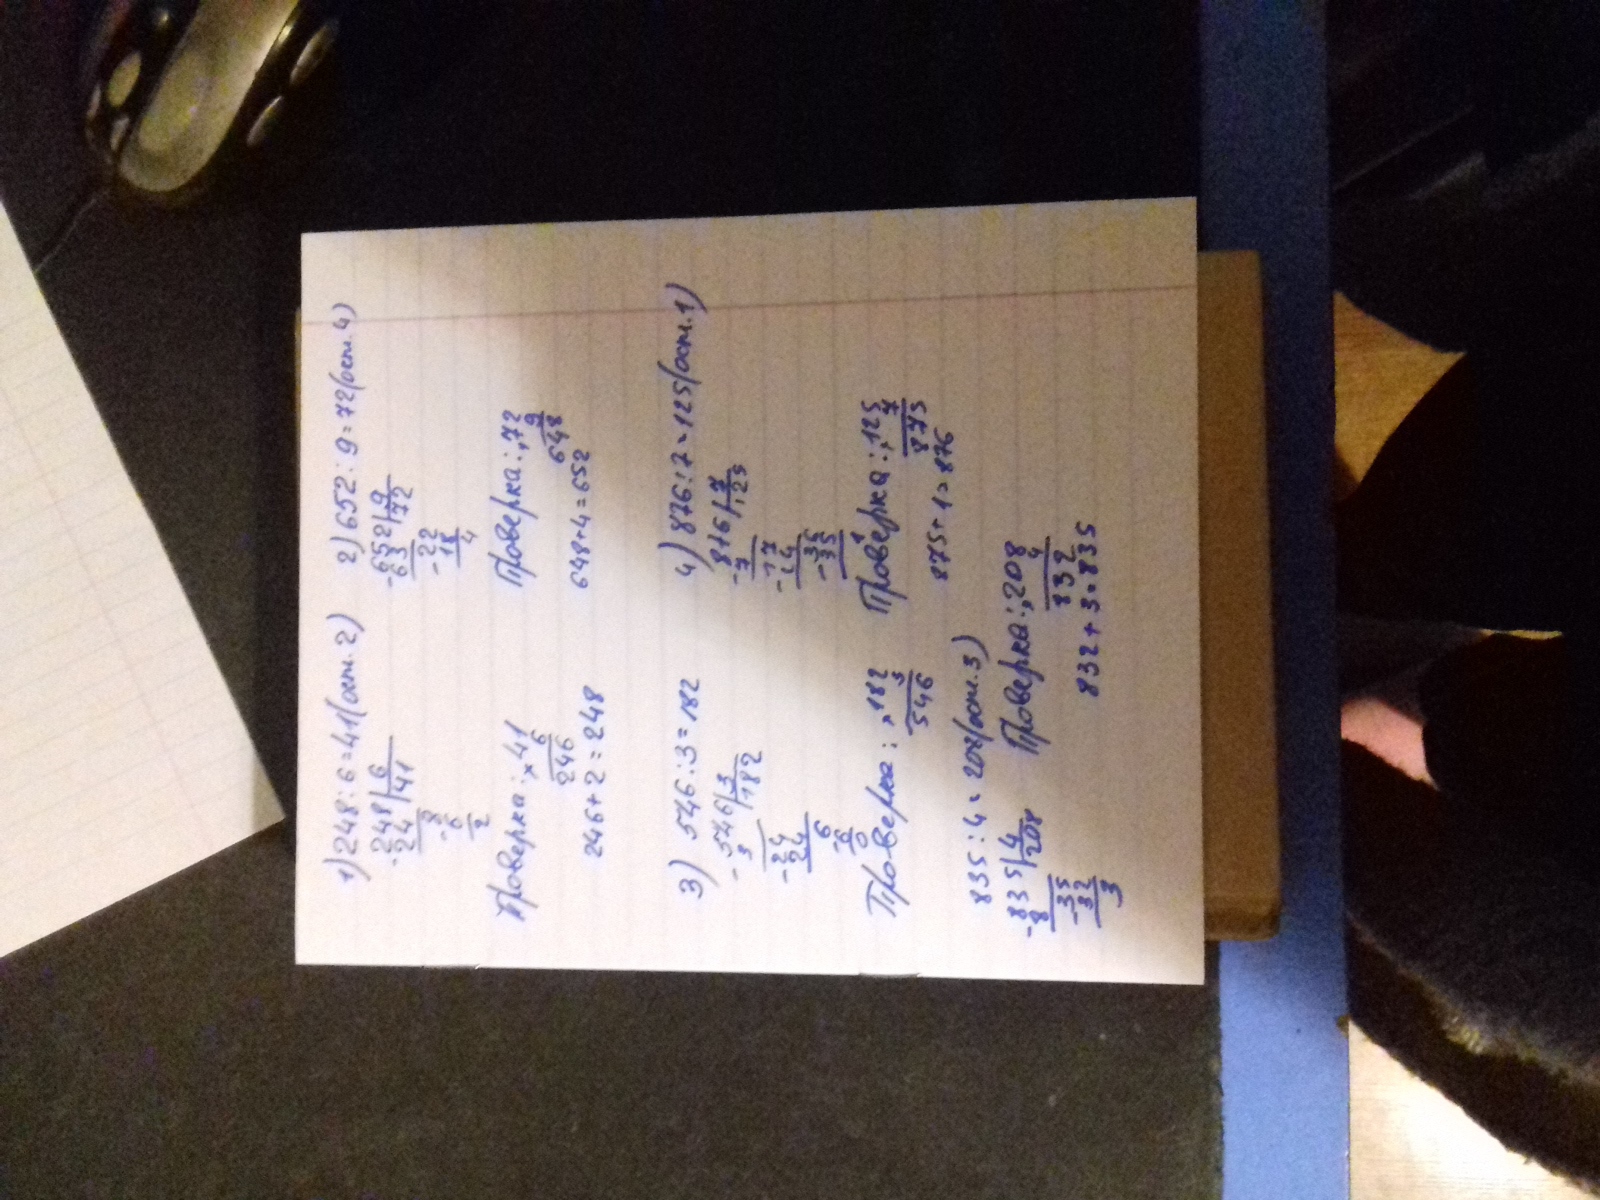 1) 248 : 6 = 41 (ост. 2)
- 248 | 6
24 | 41
- 8
6
2
Проверка: × 41
6
246
246 + 2 = 248
2) 652 : 9 = 72 (ост. 4)
- 652 | 9
63 | 72
- 22
18
4
Проверка: × 72
9
648
648 + 4 = 652
3) 546 : 3 = 182
- 546 | 3
3 | 182
- 24
24
- 6
6
0
Проверка: × 182
3
546
4) 876 : 7 = 125 (ост. 1)
- 876 | 7
7 | 125
- 17
14
- 36
35
1
Проверка: × 125
7
875
875 + 1 = 876
835 : 4 = 208 (ост. 3)
- 835 | 4
8 | 208
- 35
32
3
Проверка: × 208
4
832
832 + 3 = 835